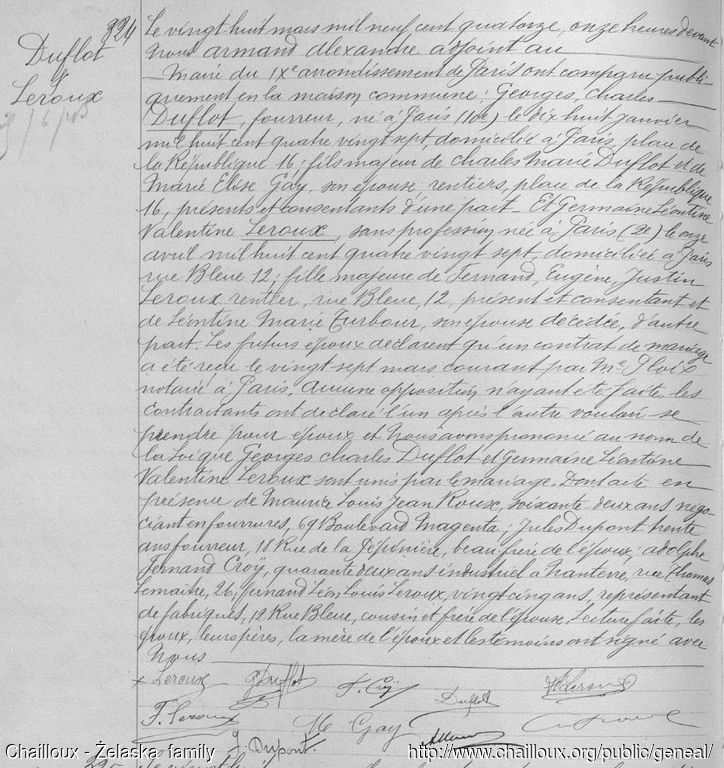 324
Duflot
&
Leroux
Le vingt huit mars mil neuf cent quatorze, onze heures devant
Nous Armand Alexandre adjoint au
Maire du IXe arrondissement de Paris ont comparu publi-
quement en la maison commune: Georges, Charles
Duflot, fourreur, né à Paris (10e) le dix huit janvier
mil huit cent quatre vingt sept, domicilié à Paris, place de
la République 16; fils majeur de Charles Marie Duflot et de
Marie Elise Gay, son épouse rentiers, place de la République
16, présents et consentants d'une part - Et Germaine Léontine
Valentine Leroux, sans profession née à Paris (2e) le onze
avril mil huit cent quatre vingt sept, domiciliée à Paris
rue Bleue 12; fille majeure de Fernand, Eugène, Justin
Leroux rentier, rue Bleue, 12, présent et consentant et
de Léontine Marie Turbour, son épouse décédée, d'autre
part. Les futurs époux déclarent qu'un contrat de mariage
a été reçu le vingt sept mars courant par Me Ploix
notaire à Paris. Aucune opposition n'ayant été faite, les
contractants ont déclaré l'un après l'autre vouloir se
prendre pour époux et Nous avons prononcé au nom de
la Loi que Georges Charles Duflot et Germaine Léontine
Valentine Leroux sont unis par le mariage. Dont acte en
présence de Maurice Louis Jean Roux, soixante deux ans négo-
ciant en fourrures, 69 Boulevard Magenta; Jules Dupont trente
ans fourreur, 18 Rue de la Pépinière, beau frère de l'époux; Adolphe
Fernand Croÿ, quarante deux ans industriel à Nanterre, rue Thomas
Lemaitre, 26; Fernand Léon Louis Leroux, vingt cinq ans, représentant
de fabriques, 12 Rue Bleue, cousin et frère de l'épouse. Lecture faite, les
époux, leurs pères, la mère de l'époux et les témoins ont signé avec
Nous
Leroux G Duflot F. Croÿ Duflot Leroux
F. Leroux M Gay
J. Dupont.
Chailloux - Żelaska family http://www.chailloux.org/public/geneal/